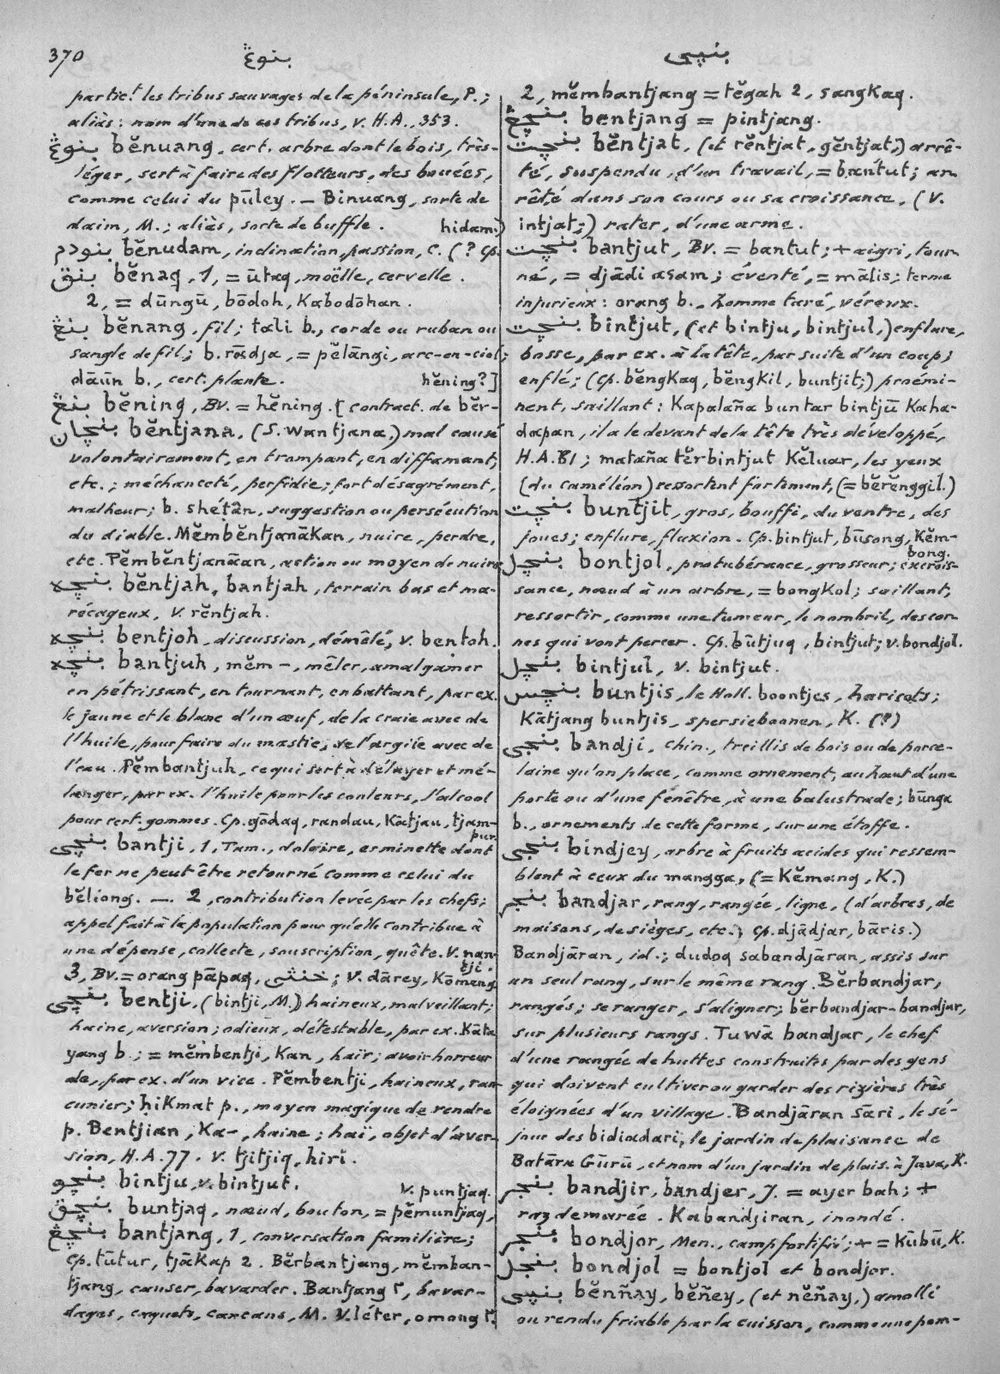 370
بنوڠ
بنچى
partict les tribus sauvages de la péninsule, P.;
aliàs: nom d'une de ces tribus, v. H.A., 353.
بنوڠ bĕnuang, cert. arbre dont le bois, très-
léger, sert à faire des flotteurs, des bouées,
comme celui du pūley. — Binuang, sorte de
daim, M.; aliàs, sorte de buffle. hidam.)
بنودم bĕnudam, inclination, passion, C. (? Cp.
بنق bĕnaq, 1, = ūtaq, moëlle, cervelle.
2, = dūngū, bōdoh, Kabodōhan.
بنڠ bĕnang, fil; tali b., corde ou ruban ou
sangle de fil; b. rādja, = pĕlāngi, arc-en-ciel;
dāūn b., cert. plante. hĕning?]
بنڠ bĕning, BV. = hĕning. [contract. de bĕr-
بنچان bĕntjana, (S. wantjana,) mal causé
volontairement, en trompant, en diffamant,
etc.; méchanceté, perfidie; fort désagrément,
malheur; b. shéṭān, suggestion ou persécution
du diable. MĕmbĕntjanāKan, nuire, perdre,
etc. Pĕmbĕntjanāan, action ou moyen de nuire
بنچه bĕntjah, bantjah, terrain bas et ma-
récageux, v. rĕntjah.
بنچه bentjoh, discussion, démêlé, v. bentoh.
بنچه bantjuh, mĕm-, mêler, amalgamer
en pétrissant, en tournant, en battant, par ex.
le jaune et le blanc d'un œuf, de la craie avec de
l'huile, pour faire du mastic, de l'argile avec de
l'eau. Pĕmbantjuh, ce qui sert à délayer et mé-
langer, par ex. l'huile pour les couleurs, l'alcool
pour cert. gommes. Cp. gōdaq, randau, Kātjau, tjam-
pur.
بنچى bantji, 1, Tam., doloire, erminette dont
le fer ne peut être retourné comme celui du
bĕliong. — 2, contribution levée par les chefs;
appel fait à la population pour qu'elle contribue à
une dépense, collecte, souscription, quête. V. nan-
tji.
3, BV. = orang pāpaq, خنثى; V. dārey, Kōmeng
بنچى bentji, (bintji, M.) haineux, malveillant;
haine, aversion; odieux, détestable, par ex. Kāta
yang b.; = mĕmbentji, Kan, haïr, avoir horreur
de, par ex. d'un vice. Pĕmbentji, haineux, ran-
cunier; ḥiKmat p., moyen magique de rendre
p. Bentjian, Ka-, haine; haï, objet d'aver-
sion, H.A. 77. V. tjitjiq, hiri.
بنچو bintju, v. bintjut. V. puntjaq.
بنچق buntjaq, nœud, bouton, = pĕmuntjaq,
بنچڠ bantjang, 1, conversation familière;
Cp. tūtur, tjāKap 2. Bĕrbantjang, mĕmban-
tjang, causer, bavarder. Bantjang ٢, bavar-
dages, caquets, cancans, M. V. léter, omong ٢.
2, mĕmbantjang = tĕgah 2, sangKaq.
بنچڠ bentjang = pintjang.
بنچت bĕntjat, (et rĕntjat, gĕntjat,) arrê-
té, suspendu, d'un travail, = bantut; ar-
rêté dans son cours ou sa croissance, (V.
intjat;) rater, d'une arme.
بنچت bantjut, BV. = bantut; + aigri, tour-
né, = djādi asam; éventé, = mālis; terme
injurieux: orang b., homme taré, véreux.
بنچت bintjut, (et bintju, bintjul,) enflure,
bosse, par ex. à la tête, par suite d'un coup;
enflé; (Cp. bĕngKaq, bĕngKil, buntjit;) proémi-
nent, saillant: Kapalaña buntar bintjū Kaha-
dapan, il a le devant de la tête très développé,
H.A. 81; mataña tĕrbintjut Kĕluar, les yeux
(du caméléon) ressortent fortement, (= bĕrĕnggil.)
بنچت buntjit, gros, bouffi, du ventre, des
joues; enflure, fluxion. Cp. bintjut, būsong, Kĕm-
bong.
بنچل bontjol, protubérance, grosseur; excrois-
sance, nœud à un arbre, = bongKol; saillant,
ressortir, comme une tumeur, le nombril, des cor-
nes qui vont percer. Cp. būtjuq, bintjut; v. bondjol.
بنچل bintjul, v. bintjut.
بنچس buntjis, le Holl. boontjes, haricots;
Kātjang buntjis, spersieboonen, K. (?)
بنجى bandji, chin., treillis de bois ou de porce-
laine qu'on place, comme ornement, au haut d'une
porte ou d'une fenêtre, à une balustrade; būnga
b., ornements de cette forme, sur une étoffe.
بنجى bindjey, arbre à fruits acides qui ressem-
blent à ceux du mangga, (= Kĕmang, K.)
بنجر bandjar, rang, rangée, ligne, (d'arbres, de
maisons, de sièges, etc.; Cp. djādjar, bāris.)
Bandjāran, id.; dudoq sabandjāran, assis sur
un seul rang, sur le même rang. Bĕrbandjar,
rangés; se ranger, s'aligner; bĕrbandjar-bandjar,
sur plusieurs rangs. Tuwā bandjar, le chef
d'une rangée de huttes construites par des gens
qui doivent cultiver ou garder des rizières très
éloignées d'un village. Bandjāran Sāri, le sé-
jour des bidiadari; le jardin de plaisance de
Batāra Gūrū, et nom d'un jardin de plais. à Java, K.
بنجر bandjir, bandjer, J. = ayer bah; +
raz de marée. Kabandjiran, inondé.
بنجر bondjor, Men., camp fortifié; + = Kūbū, K.
بنجل bondjol = bontjol et bondjor.
بنيى bĕnñay, bĕñey, (et nĕñay,) amolli
ou rendu friable par la cuisson, comme une pom-